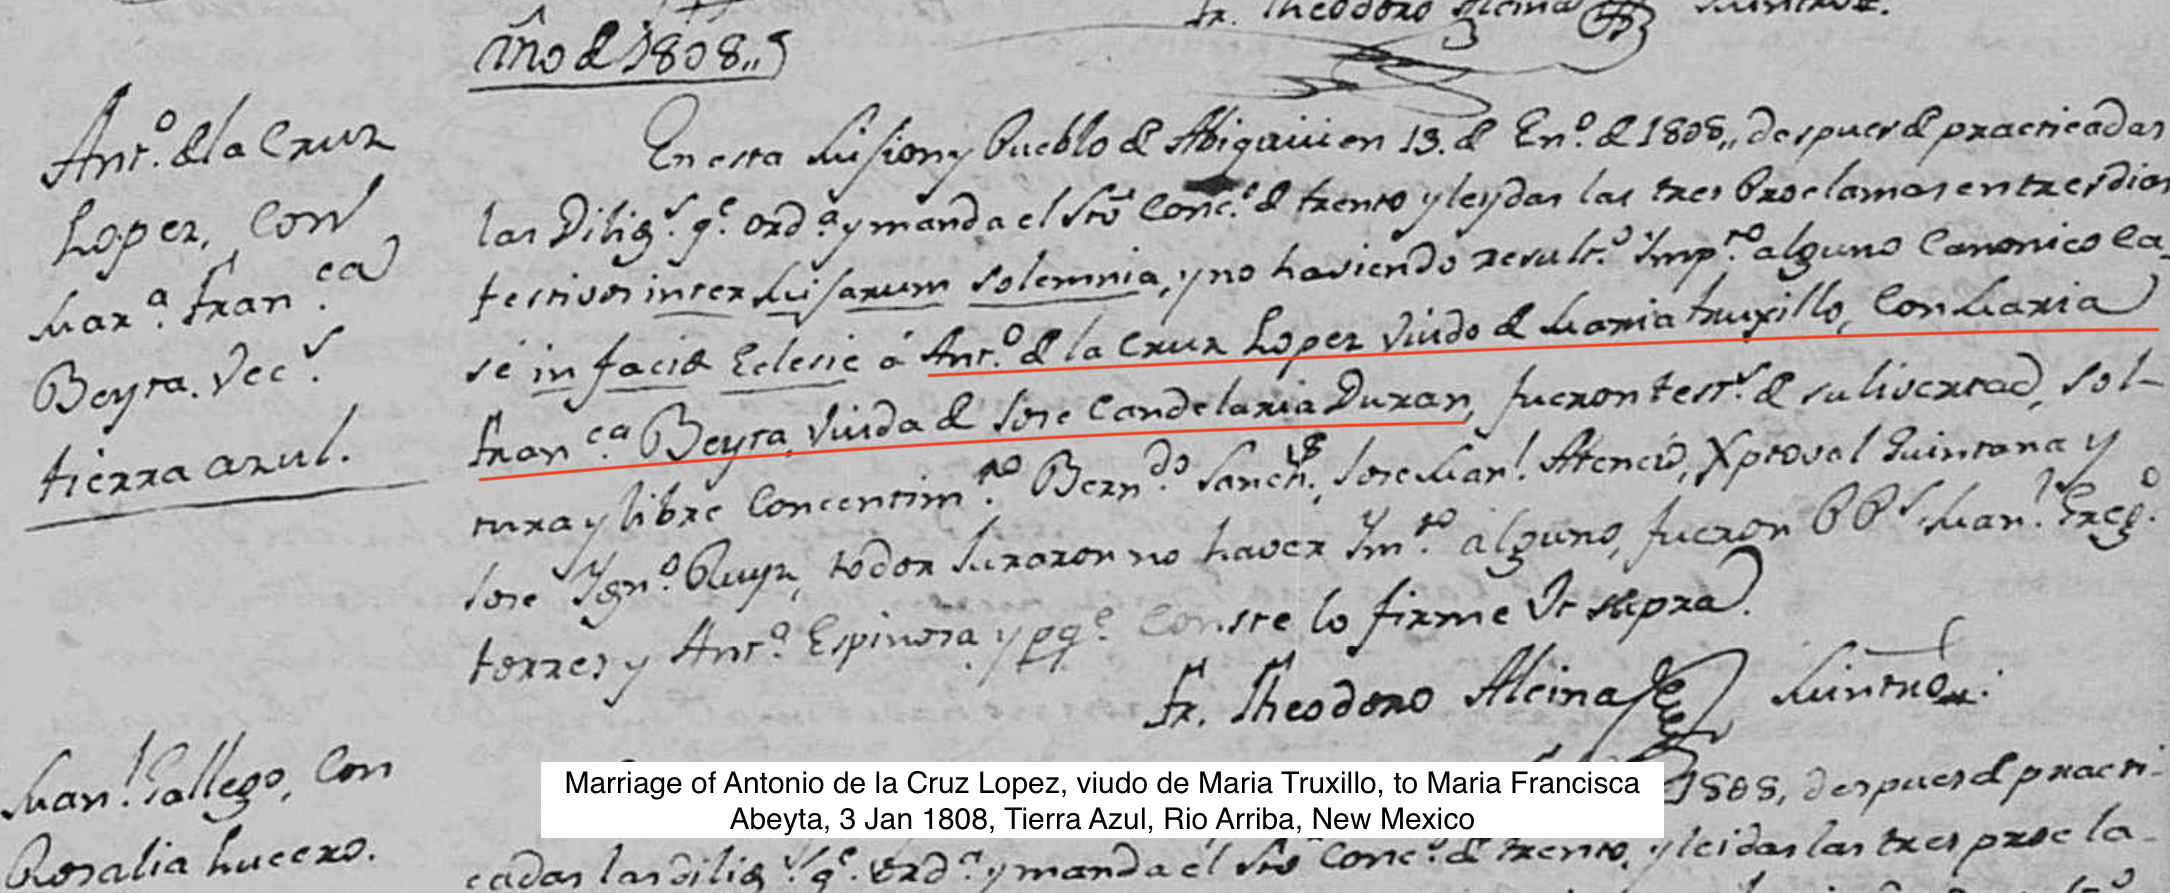 Fr. Theodoro Alcina Mintro.
Año d 1808,,
Ant.º d la Cruz
Lopez, con
Mar.ª Fran.ca
Beyta. Vec.s
tierra azul.
En esta Mision y Pueblo d Abiquiu en 13. d En.º d 1808,, despues d practicadas
las Dilig.s q.e ord.ª y manda el Sto Conc.º d trento y leydas las tres Proclamas en tres dias
festivos inter Misarum solemnia, y no haviendo result.º Imp.to alguno Canonico Ca-
sé in facie Eclesie á Ant.º d la Cruz Lopez Viudo d Maria truxillo, Con Maria
Fran.ca Beyta, Viuda d Jose Candelaria Duran, fueron test.s d su livertad, sol-
tura y libre Concentim.to Bern.do Sanch.s, Jose Man.l Atencio, Xptoval Quintana y
Jose Ygn.º Ruyz, todos Juraron no haver Ym.to alguno, fueron PP.s Man.l Greg.º
torres y Ant.ª Espinosa, y p.q.e Conste lo firme Vt supra.
Fr. Theodoro Alcina Mintro.
Man.l Gallego, Con
Rosalia Lucero.
1808, despues d practi-
cadas las dilig.s q.e ord.ª y manda el Sto Conc.º d trento, y leidas las tres procla-
Marriage of Antonio de la Cruz Lopez, viudo de Maria Truxillo, to Maria Francisca
Abeyta, 3 Jan 1808, Tierra Azul, Rio Arriba, New Mexico